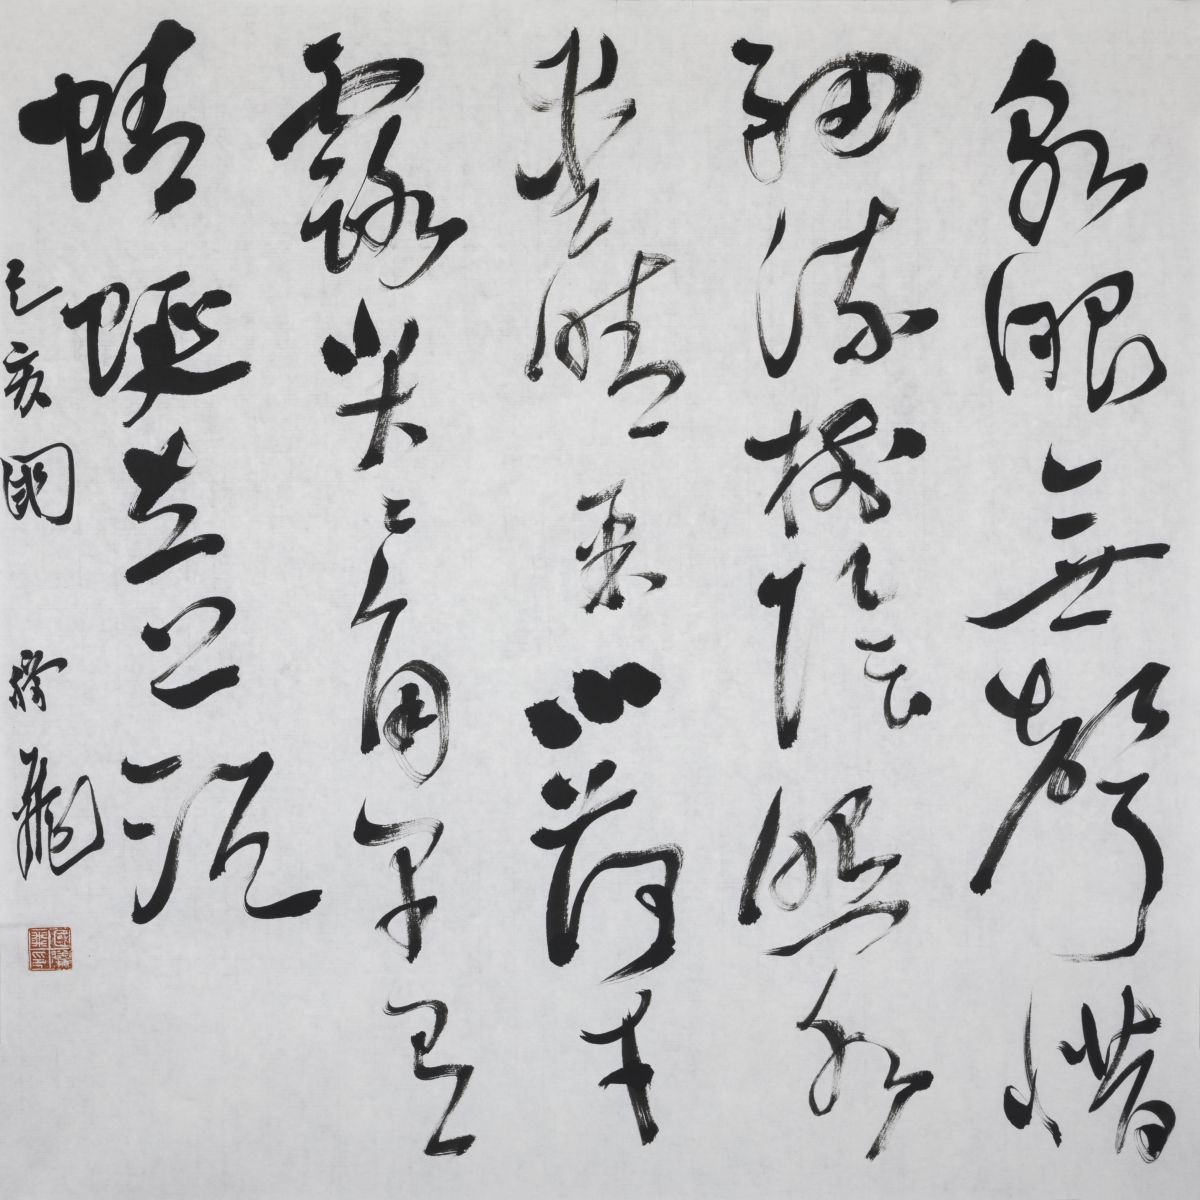 泉眼無聲惜
細流樹陰照水
愛晴柔小荷才
露尖々角早有
蜻蜓立上頭
己亥國